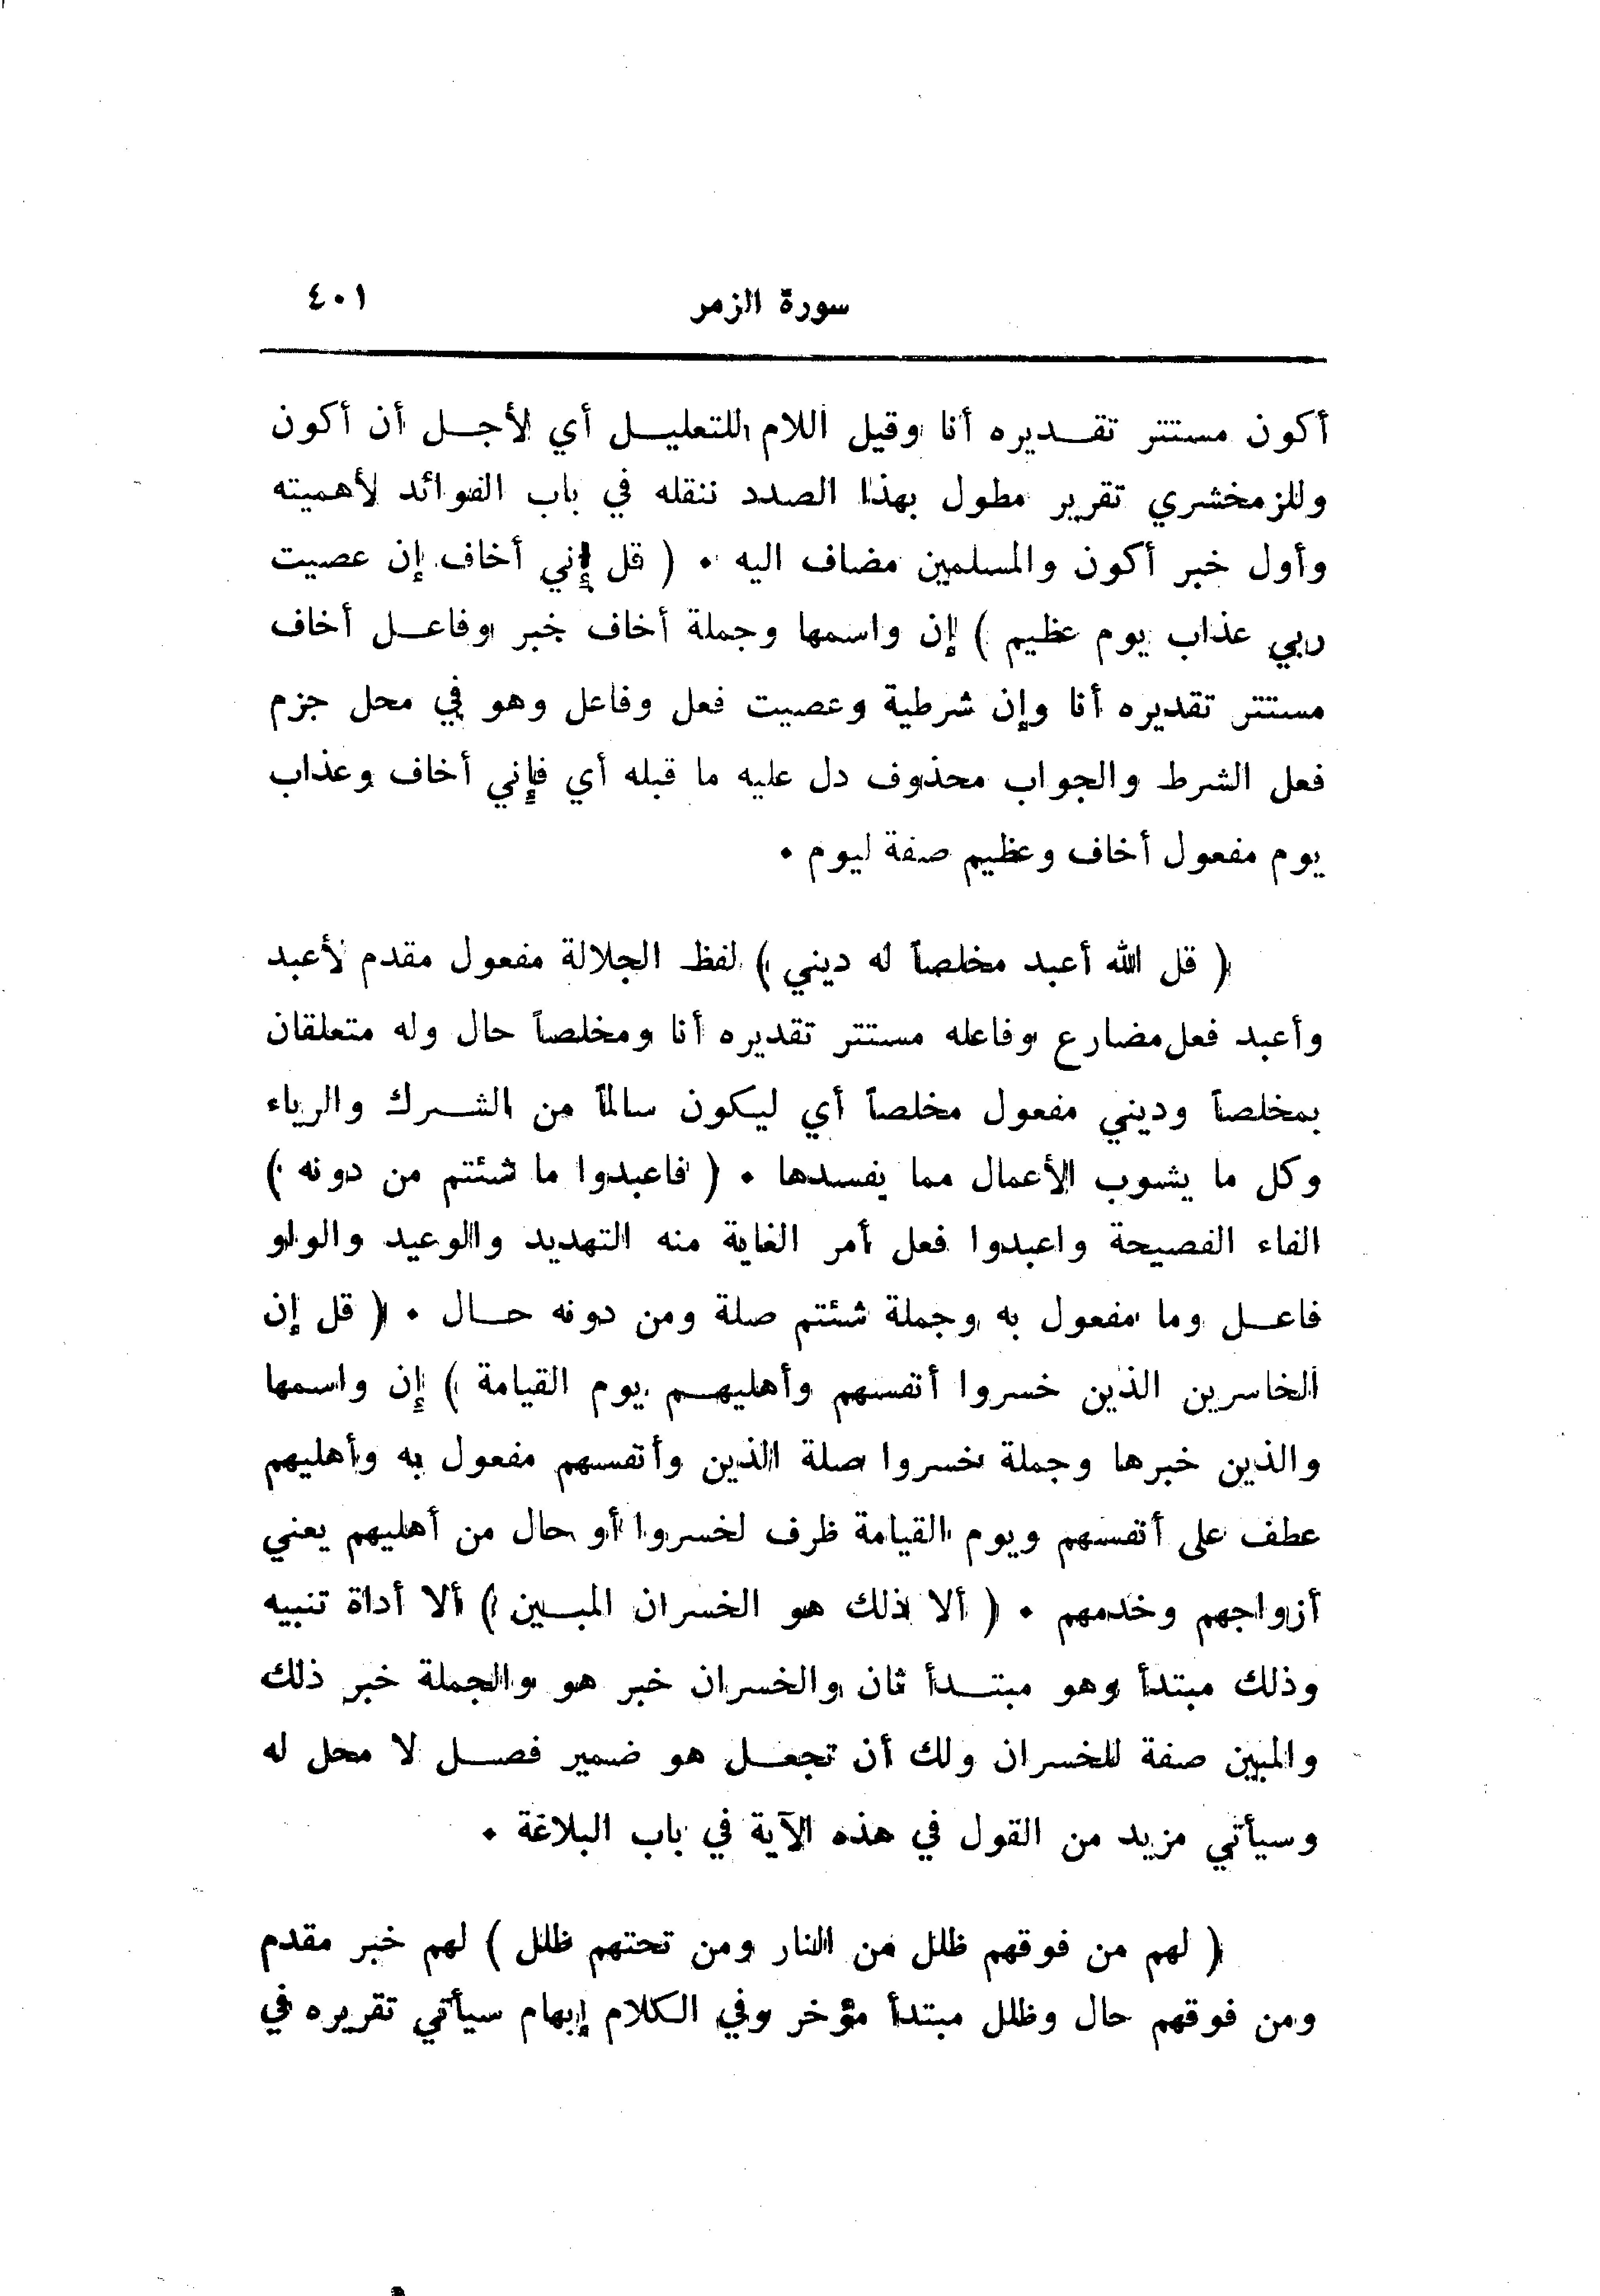 سورة الزمر ٤٠١
أكون مستتر تقديره أنا وقيل اللام للتعليل أي لأجل أن أكون
وللزمخشري تقرير مطول بهذا الصدد ننقله في باب الفوائد لأهميته
وأول خبر أكون والمسلمين مضاف اليه ٠ ( قل إني أخاف إن عصيت
ربي عذاب يوم عظيم ) إن واسمها وجملة أخاف خبر وفاعل أخاف
مستتر تقديره أنا وإن شرطية وعصيت فعل وفاعل وهو في محل جزم
فعل الشرط والجواب محذوف دل عليه ما قبله أي فإني أخاف وعذاب
يوم مفعول أخاف وعظيم صفة ليوم ٠
( قل الله أعبد مخلصاً له ديني ) لفظ الجلالة مفعول مقدم لأعبد
وأعبد فعل مضارع وفاعله مستتر تقديره أنا ومخلصاً حال وله متعلقان
بمخلصاً وديني مفعول مخلصاً أي ليكون سالماً من الشرك والرياء
وكل ما يشوب الأعمال مما يفسدها ٠ ( فاعبدوا ما شئتم من دونه )
الفاء الفصيحة واعبدوا فعل أمر الغاية منه التهديد والوعيد والواو
فاعل وما مفعول به وجملة شئتم صلة ومن دونه حال ٠ ( قل إن
الخاسرين الذين خسروا أنفسهم وأهليهم يوم القيامة ) إن واسمها
والذين خبرها وجملة خسروا صلة الذين وأنفسهم مفعول به وأهليهم
عطف على أنفسهم ويوم القيامة ظرف لخسروا أو حال من أهليهم يعني
أزواجهم وخدمهم ٠ ( ألا ذلك هو الخسران المبين ) ألا أداة تنبيه
وذلك مبتدأ وهو مبتدأ ثان والخسران خبر هو والجملة خبر ذلك
والمبين صفة للخسران ولك أن تجعل هو ضمير فصل لا محل له
وسيأتي مزيد من القول في هذه الآية في باب البلاغة ٠
( لهم من فوقهم ظلل من النار ومن تحتهم ظلل ) لهم خبر مقدم
ومن فوقهم حال وظلل مبتدأ مؤخر وفي الكلام إبهام سيأتي تقريره في